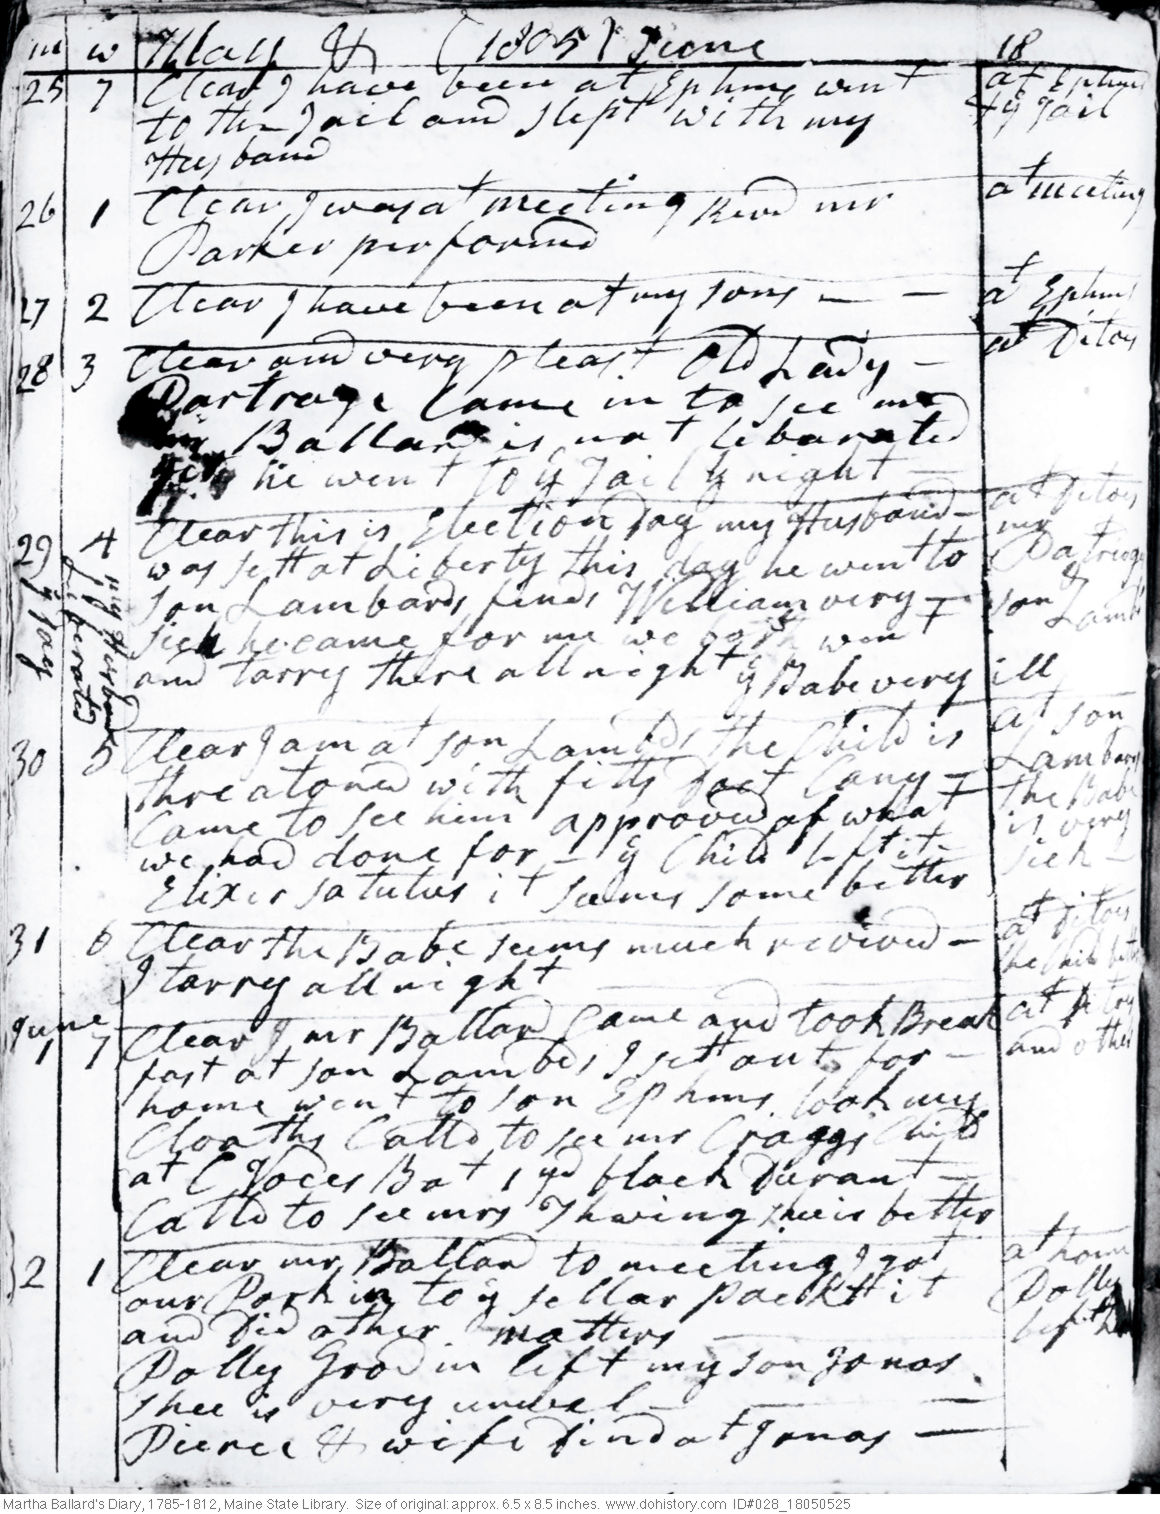 m w May & (1805) June 18
25 7 Clear I have been at Ephms went at Ephms
to the Jail and slept with my & ÿ Jail
Husband
26 1 Clear, I was at meeting Revd mr at meeting
Parker performd
27 2 Clear I have been at my sons at Ephms
28 3 Clear and very pleast Old Lady at Ditos
Partrage Came in to see me
Ballard is not libarated
yet he went to ÿ Jail ÿ night
29 4 Clear this is Election Day my Husband at Ditos
was sett at Liberty this day he went to mr Patridge
son Lambards finds William very son Lambd
sick he came for me we both went
and tarry there all night ÿ Babe very ill
my Husband
Liberated
ÿ Day
30 5 Clear I am at son Lambds the Child is at son
threatoned with fitts Doct Cany Lambards
Came to see him approved of what the Babe
we had done for ÿ Child left it is very
Elixer salutus it seems some better sick
31 6 Clear the Babe seems much revived at Ditos
I tarry all night the Child better
June
1 7 Clear I mr Ballard Came and took Break at Ditos
fast at son Lambds I sett out for and other
home went to son Ephms took my
Cloaths Calld to see mr Craggs Child
at Bot 1 yd black Durant
Calld to see mrs Thwing shee is better
2 1 Clear mr Ballard to meeting I got at home
our Pork in to ÿ sellar packt it Dolly
and Did other matters left
Dolly Grod in left my son Jonas
shee is very unwel
Pierce & wife Dind at Jonas
Martha Ballard's Diary, 1785-1812, Maine State Library. Size of original: approx. 6.5 x 8.5 inches. www.dohistory.com ID#028_18050525